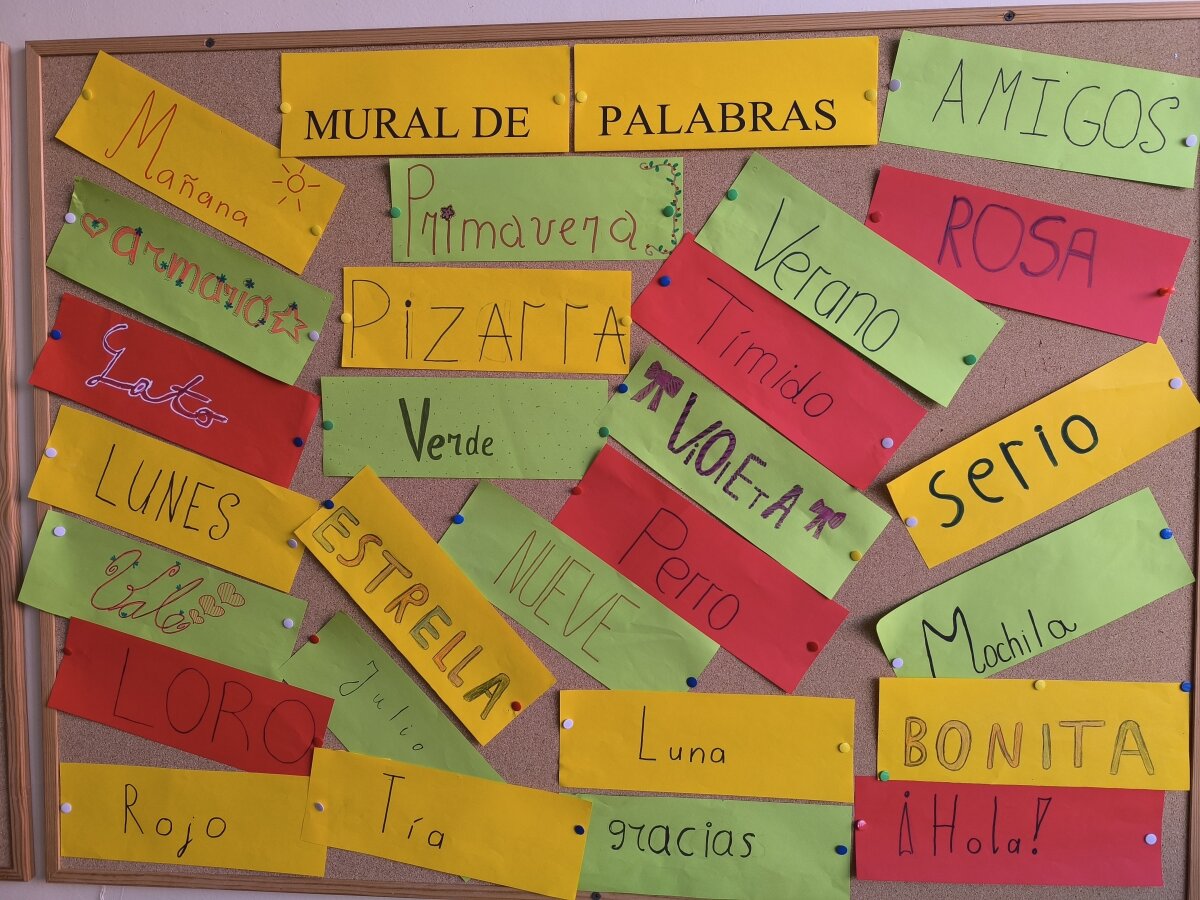 MURAL DE PALABRAS
AMIGOS
Mañana
Primavera
Verano
ROSA
armario
Pizarra
Tímido
Gato
Verde
VIOlETA
serio
LUNES
ESTRELLA
NUEVE
Perro
Mochila
LORO
Julio
Luna
BONITA
Rojo
Tía
gracias
¡Hola!